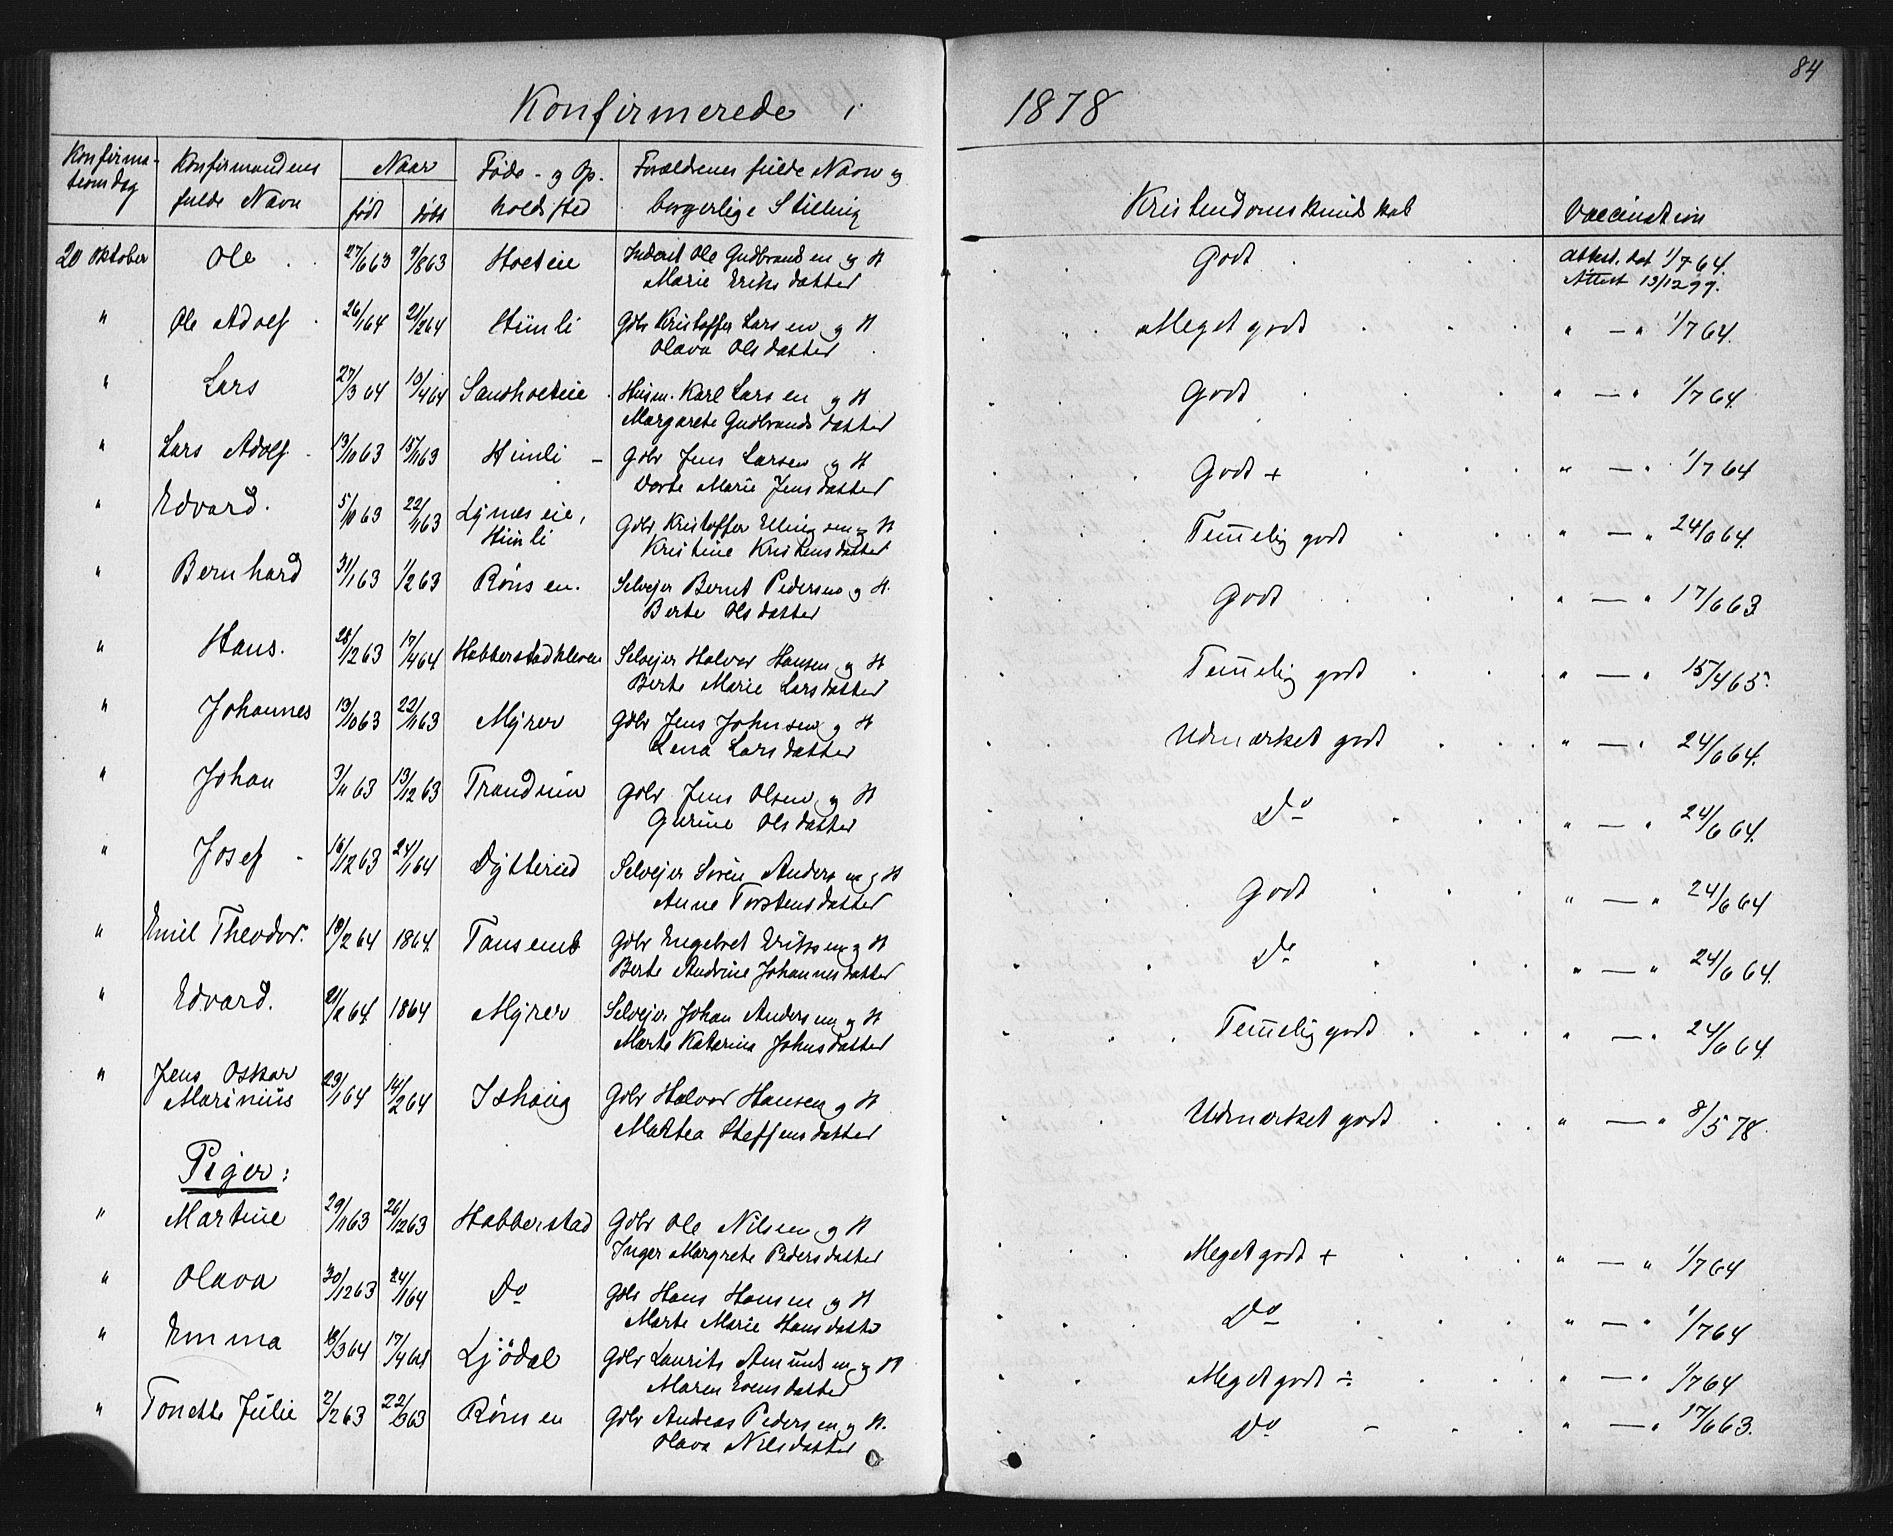 84
Konfirmerede i 1878
Konfirmationsdag | Konfirmandens fulde Navn | Naar født | døbt | Føde- og Opholdssted | Forældrenes fulde Navn og borgerlige Stilling | Kristendomskundskab | Vaccination
20 Oktober | Ole | 27/6 63 | 9/8 63 | Hoeteie | Inderst Ole Gudbrandsen og H | Godt | Attest. dat 1/7 64.
Marie Eriksdatter | Attest 13/12 99.
" | Ole Adolf | 26/1 64 | 21/2 64 | Himli | Gdbr Kristoffer Larsen og H | Meget godt | " — " 1/7 64.
Olava Olsdatter
" | Lars | 27/3 64 | 13/4 64 | Sandhoeteie | Husm. Karl Larsen og H | Godt | " — " 1/7 64.
Margarete Gudbrandsdatter
" | Lars Adolf | 13/10 63 | 15/11 63 | Himli | Gdbr Jens Larsen og H | Godt + | " — " 1/7 64
Dorte Marie Jensdatter
" | Edvard. | 5/10 63 | 22/11 63 | Lynæseie, | Gdbr Kristoffer Ellingsen og H | Temelig godt | " — " 24/6 64.
Himli | Kristine Kristensdatter
" | Bernhard | 31/1 63 | 1/2 63 | Rønsen. | Selvejer Bernt Pedersen og H. | Godt | " — " 17/6 63
Berte Olsdatter
" | Hans. | 28/12 63 | 17/4 64 | Habberstadkleven | Selvejer Halvor Hansen og H | Temelig godt | " — " 15/4 65.
Berte Marie Larsdatter
" | Johannes | 13/10 63 | 22/11 63 | Myrer | Gdbr Jens Johnsen og H | Udmærket godt | " — " 24/6 64.
Lena Larsdatter
" | Johan | 3/11 63 | 13/12 63 | Trandum | Gdbr Jens Olsen og H | Do | " — " 24/6 64.
Gurine Olsdatter
" | Josef | 16/12 63 | 24/1 64 | Dytterud | Selvejer Søren Andersen og H | Godt | " — " 24/6 64
Anne Torstensdatter
" | Emil Theodor. | 18/2 64 | 1864. | Tansemb | Gdbr Engebret Eriksen og H | Do | " — " 24/6 64.
Berte Andrine Johannesdatter
" | Edvard. | 21/2 64 | 1864 | Myrer | Selvejer Johan Andersen og H | Temelig godt | " — " 24/6 64.
Marte Katarina Johnsdatter
" | Jens Oskar | 29/1 64 | 14/2 64 | Ishaug | Gdbr Halvor Hansen og H | Udmærket godt | " — " 8/5 78.
Marinius | Martea Steffensdatter
Piger:
" | Martine | 29/11 63 | 26/12 63 | Habberstad | Gdbr Ole Nilsen og H | Meget godt + | " — " 1/7 64
Inger Margrete Pedersdatter
" | Olava | 30/12 63 | 24/1 64 | Do | Gdbr Hans Hansen og H | Do | " — " 1/7 64
Marte Marie Hansdatter
" | Emma | 18/3 64 | 17/4 64 | Ljødal | Gdbr Laurits Amundsen og H | Meget godt ÷ | " — " 1/7 64
Maren Evensdatter
" | Tonette Julie | 2/2 63 | 22/3 63 | Rønsen | Gdbr Andreas Pedersen og H. | Do | " — " 17/6 63.
Olava Nilsdatter